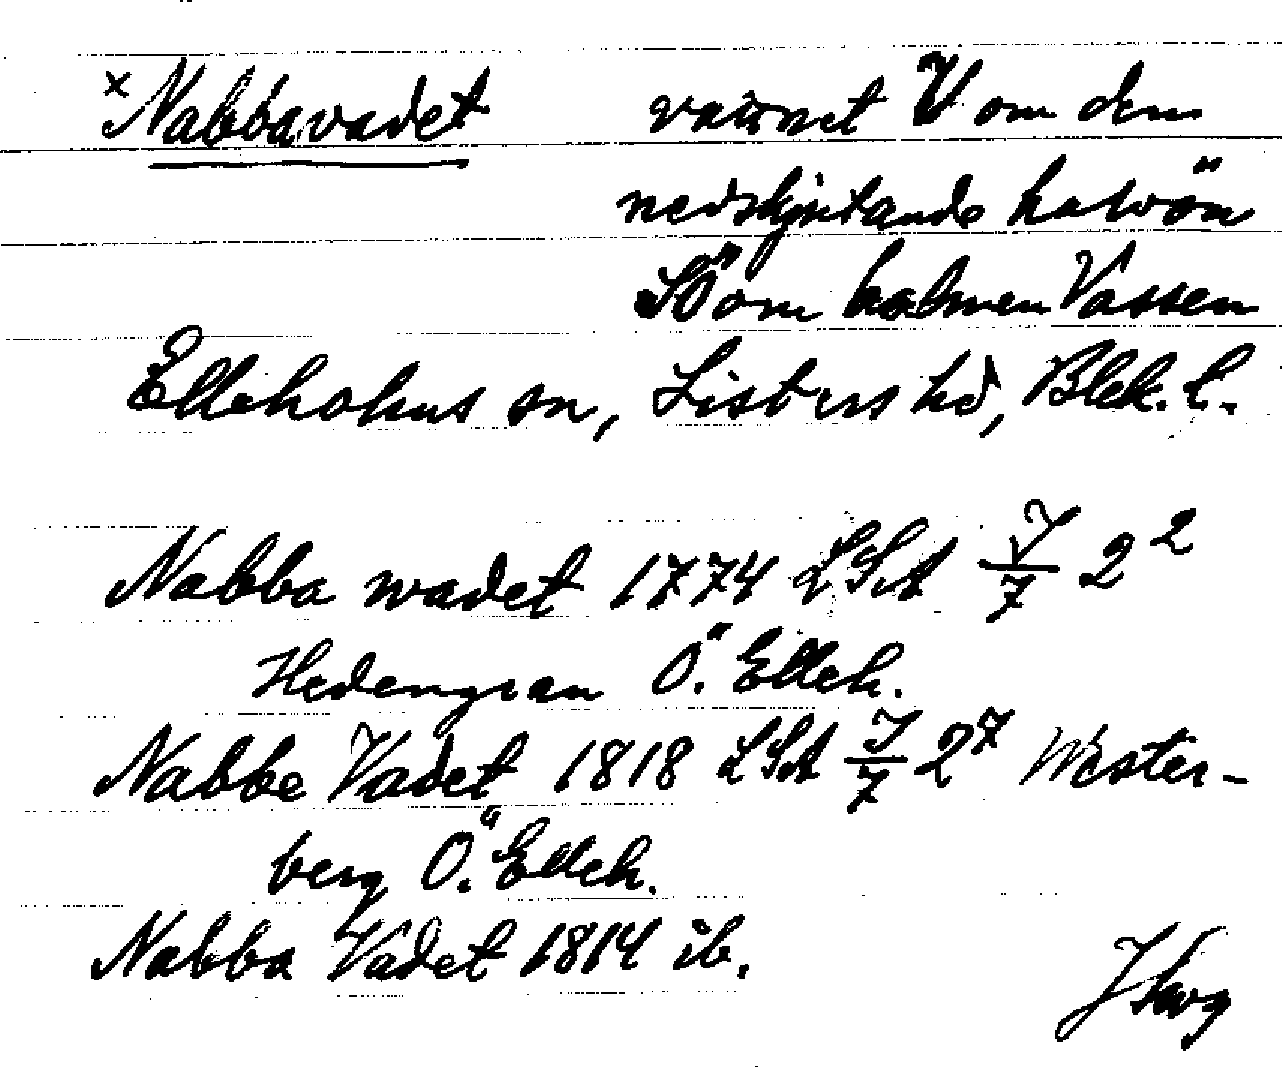 x Nabbavadet vattnet V om den
nedskjutande halvön
SÖ om holmen Vassen
Elleholms sn, Listers hd, Blek. l.
Nabba wadet 1774 LSA J/7 2²
Hedengran Ö. Elleh.
Nabbe Vadet 1818 LSA J/7 2⁷ Wester-
berg Ö. Elleh.
Nabba Vadet 1814 ib.